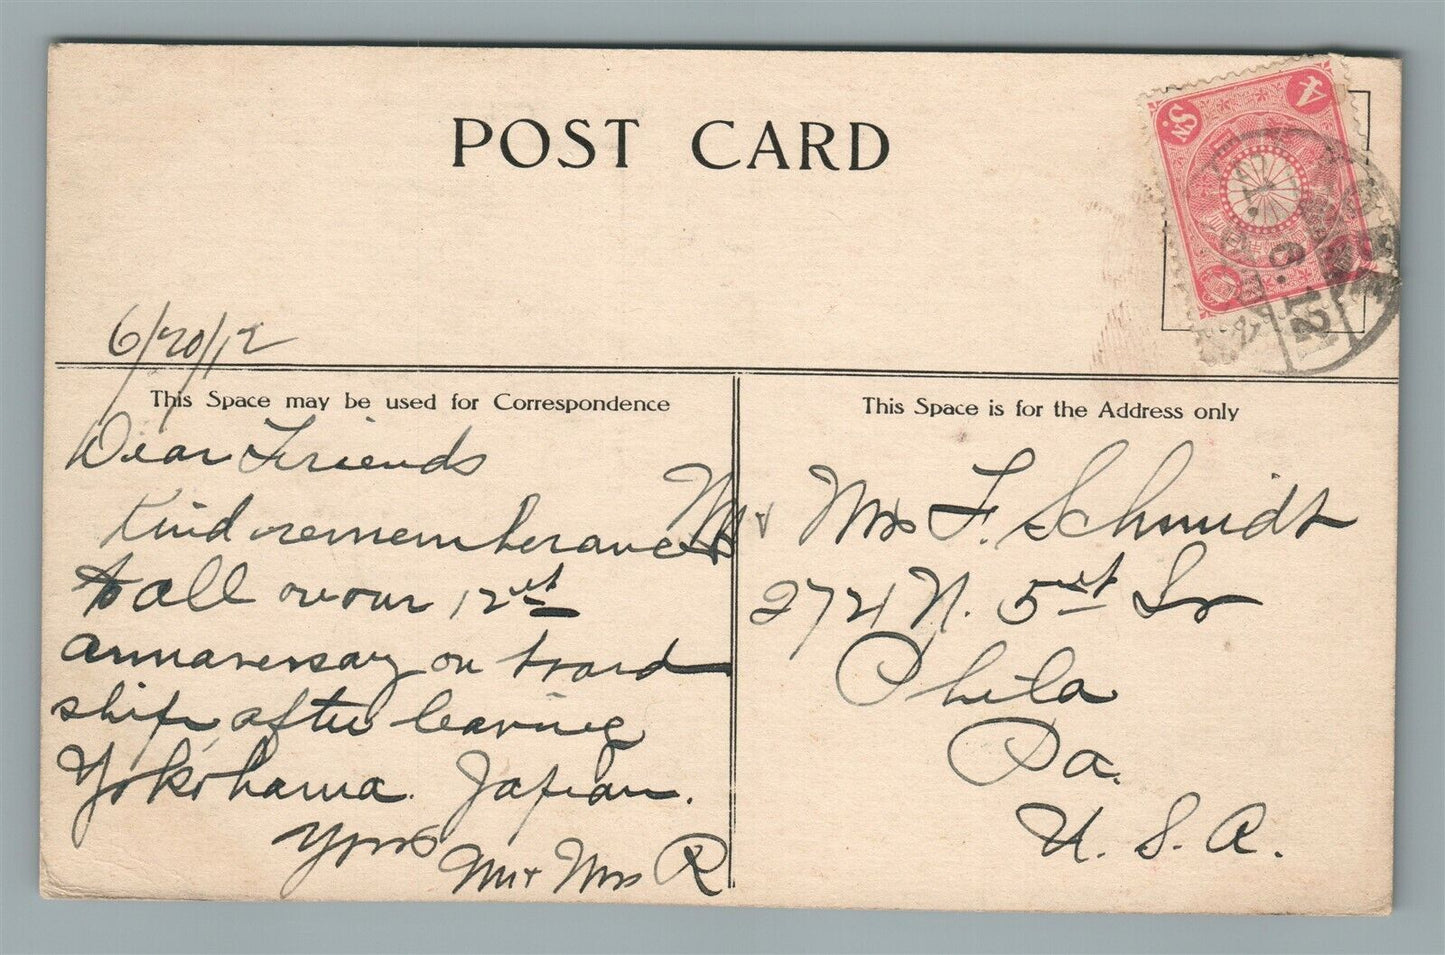 POST CARD
4
Sn.
6/20/12
This Space may be used for Correspondence
Dear Friends
Kind rememberances
to all on our 12st
annaversay on board
ship, after leaving
Yokohama. Japan.
Yours
Mr + Mrs R
This Space is for the Address only
Mr + Mrs F. Schmidt
N. 5st St
Phila
Pa.
U. S. A.